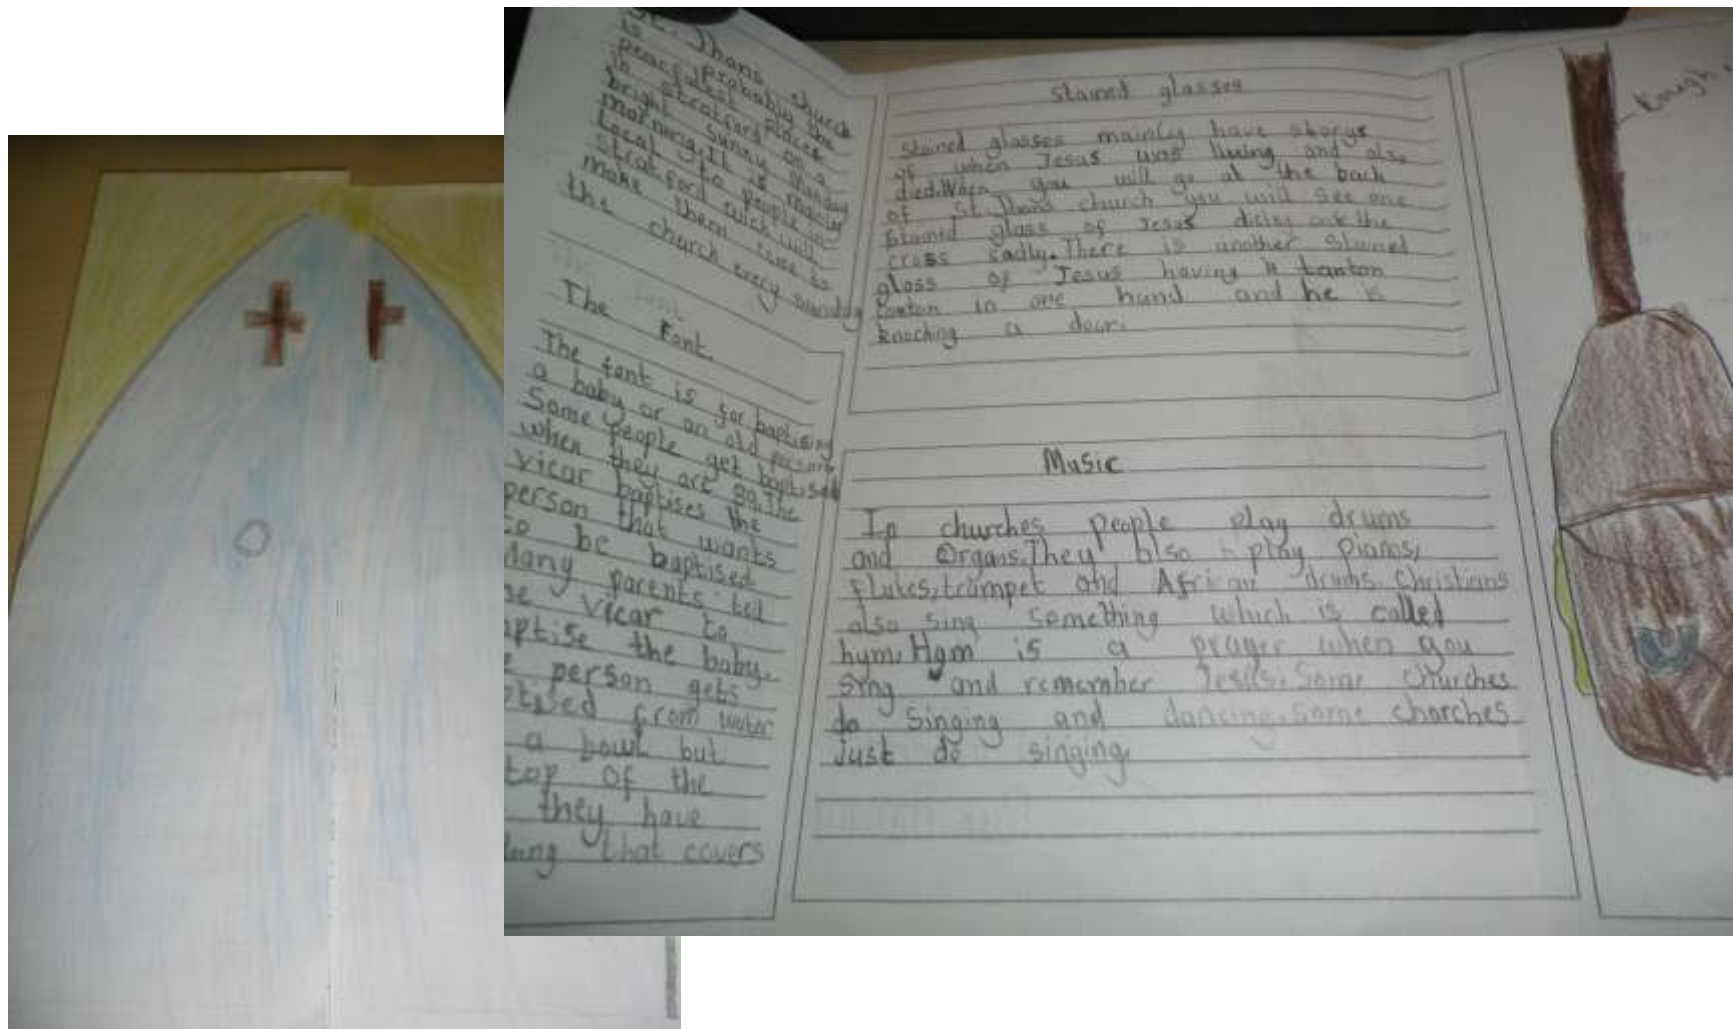 St. Jhons church
is probably the
peacfulest places
in stratford on a
bright sunny Sunday
morning. It is mainly
Local to people in
Stratford wich will
make them come to
the church every sunday
The Font.
The font is for baptising
a baby or an old person
Some people get baptised
when they are 80. The
vicar baptises the
person that wants
to be baptised
Many parents tell
he vicar to
aptise the baby.
e person gets
ptised from water
a bowl but
top of the
they have
thing that covers
Stained glasses
Stained glasses mainly have storys
of when Jesus was living and also
died. When you will go at the back
of St. Jhons church you will see one
stained glass of Jesus dieing on the
cross sadly. There is another stained
glass of Jesus having
in one hand and he is
knocking a door.
Music
In churches people play drums
and Organs. They also play pianos,
flutes, trumpet and African drums. Christians
also sing something which is called
hym. Hym is a prayer when you
sing and remember Jesus. Some churches
do singing and dancing. some charches
just do singing.